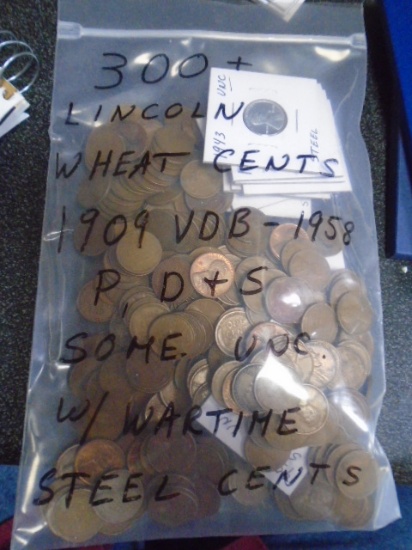 300+
LINCOLN
WHEAT CENTS
1909 VDB - 1958
P, D + S
SOME. UNC.
W/ WARTIME
STEEL CENTS
1943 UNC
STEEL